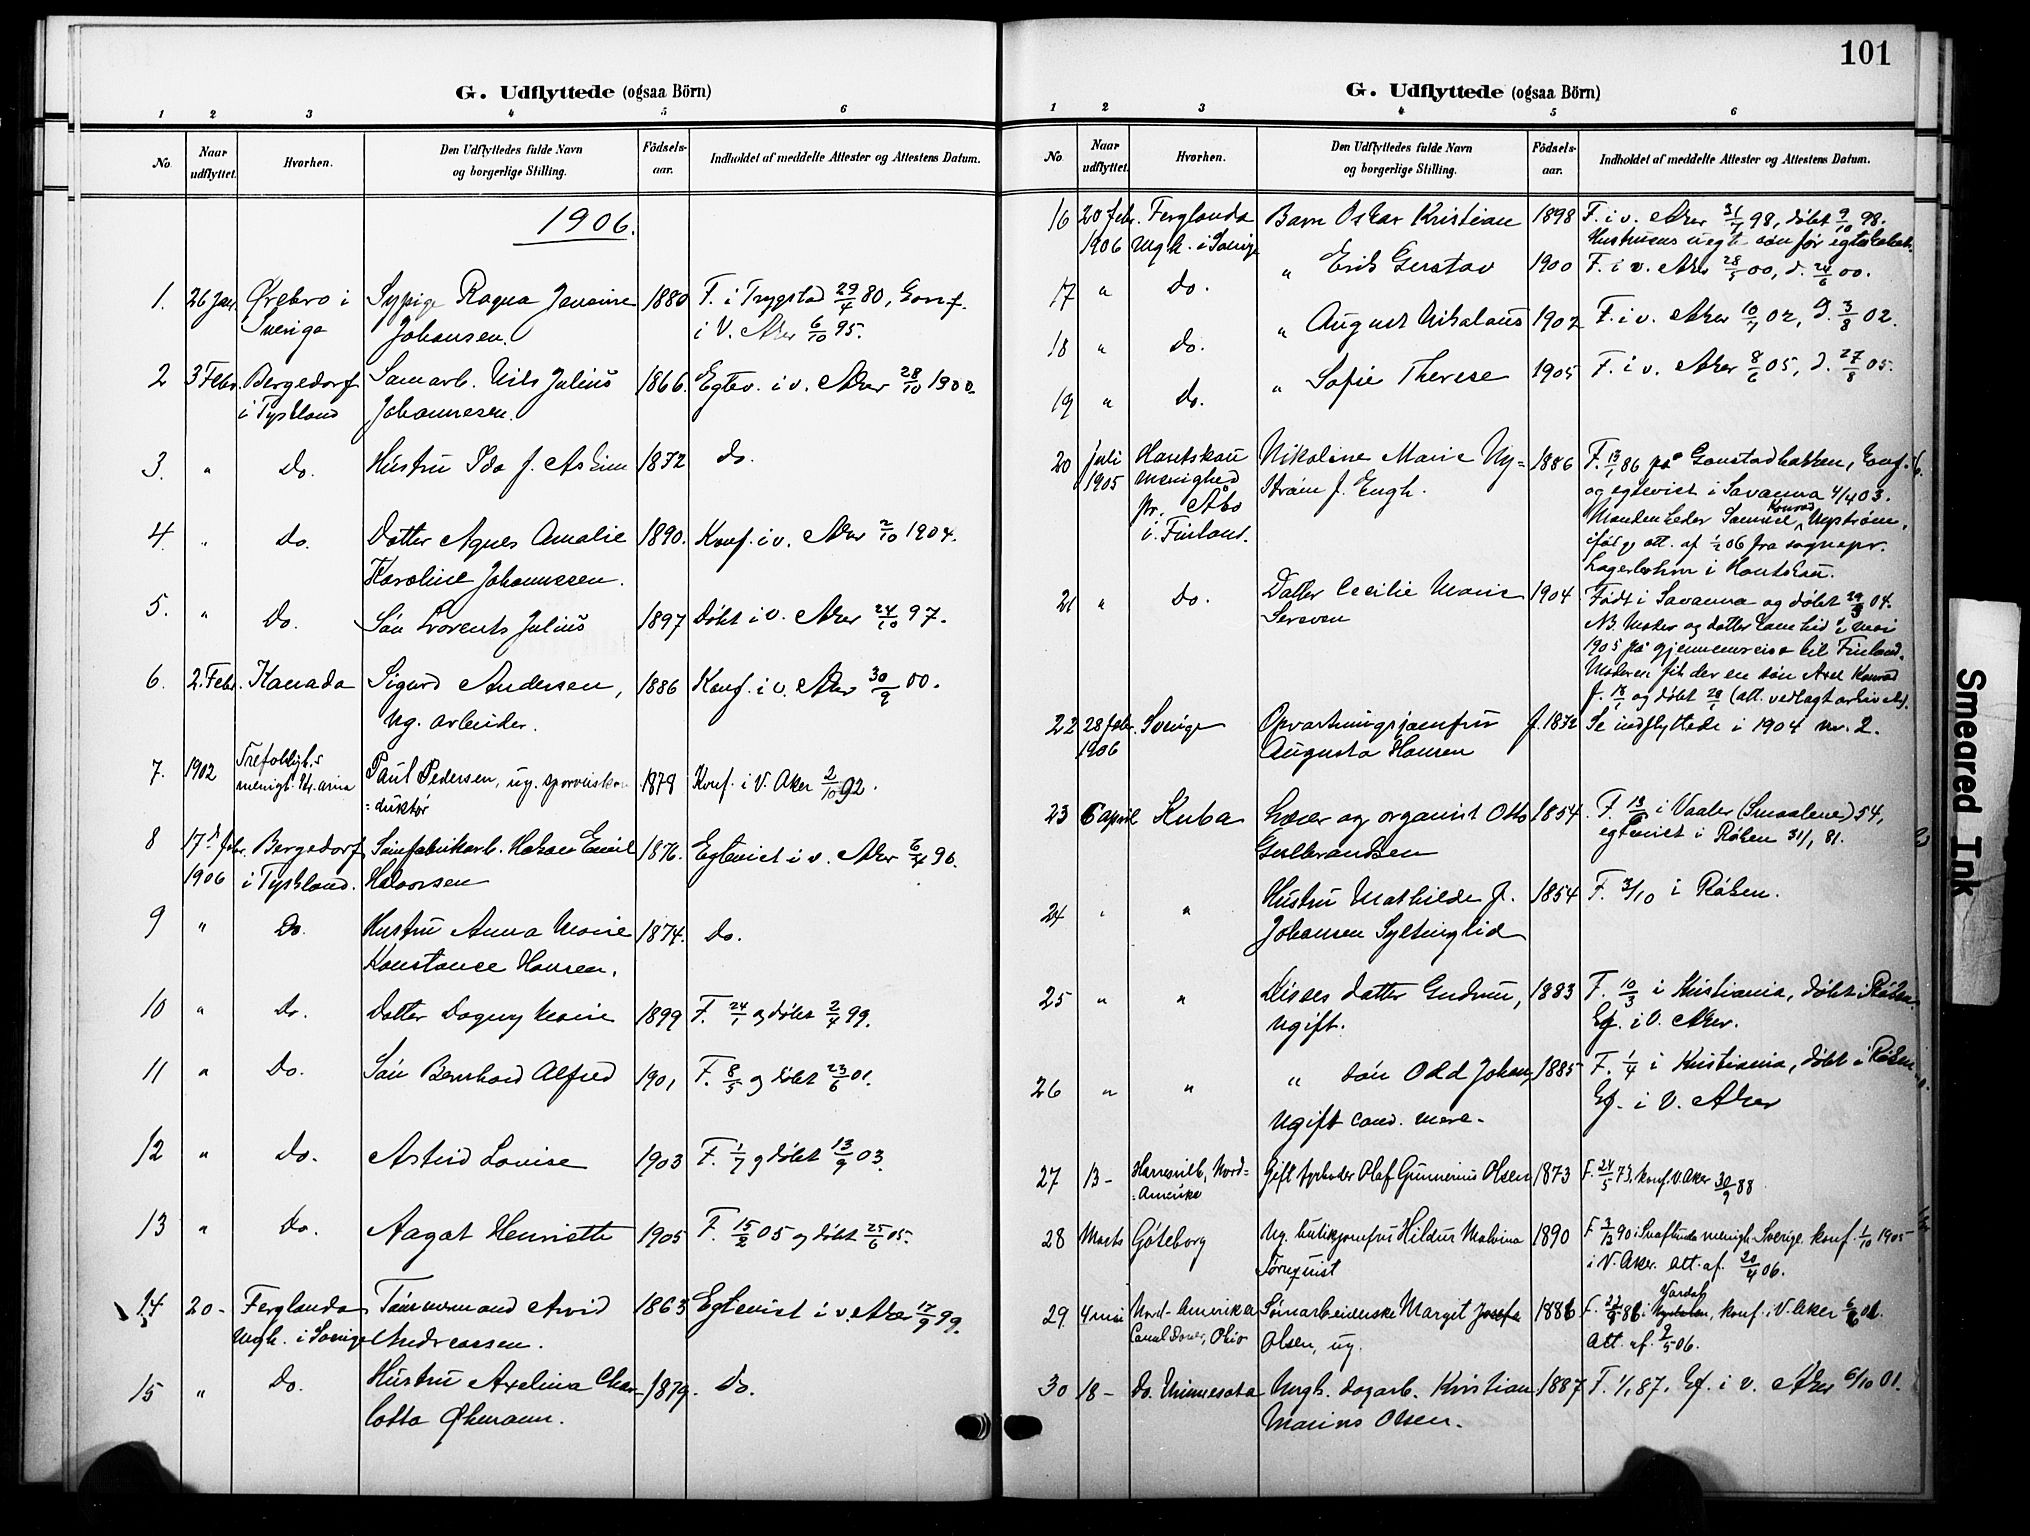 G. Udflyttede (ogsaa Börn)
1 2 3 4 5 6
No. Naar udflyttet. Hvorhen. Den Udflyttedes fulde Navn og borgerlige Stilling. Födsels-aar. Indholdet af meddelte Attester og Attestens Datum.
1906.
1. 26 Jan. Ørebro i Sypige Ragna Jensine 1880 F. i Trygstad 29/4 80, konf.
Sverige Johansen. i V. Aker 6/10 95.
2 3 Febr. Bergedorf Sømarb. Nils Julius 1866. Egtev. i v. Aker 28/10 1900.
i Tyskland Johannesen.
3. " Do. Hustru Ida f. Askim 1872 do.
4. " Do. Datter Agnes Amalie 1890. Konf. i v. Aker 2/10 1904.
Karoline Johannesen.
5. " Do. Søn Lorents Julius 1897 Døbt i v. Aker 24/10 97.
6. 2. Febr. Kanada Sigurd Andersen, 1886 Konf. i v. Aker 30/9 00.
ug. arbeider.
7. 1902 Trefoldigh.s Paul Pedersen, ug. sporveiskon 1878 Konf. i V. Aker 2/10 92.
menigh. Kr.ania =duktør
8 17 febr. Bergedorf Sømfabrikarb. Hakon Emil 1876. Egteviet i v. Aker 6/4 96.
1906 i Tyskland. Halvorsen
9 " Do. Hustru Anna Marie 1874. do.
Konstance Hansen.
10 " Do. Datter Dagny Marie 1899 F. 24/1 og døbt 2/4 99.
11 " Do. Søn Bernhard Alfred 1901 F. 8/5 og døbt 23/6 01.
12 " Do. Astrid Lovise 1903 F. 1/7 og døbt 13/9 03.
13 " Do. Aagot Henriette 1905 F. 15/2 05 og døbt 25/6 05.
14 20- Ferglanda Tømmermand Arvid 1863 Egteviet i v. Aker 17/9 99.
Mgh. i Sverige Andreassen.
15 " Do. Hustru Axelina Char- 1879. do.
lotta Øhmann.
101
G. Udflyttede (ogsaa Börn)
1 2 3 4 5 6
No. Naar udflyttet. Hvorhen. Den Udflyttedes fulde Navn og borgerlige Stilling. Födsels-aar. Indholdet af meddelte Attester og Attestens Datum.
16 20 febr. Ferglanda Barn Oskar Kristian 1898 F. i v. Aker 31/7 98, døbt 9/10 98.
1906 Mgh. i Sverige Hustruens uegte søn før egteskabet.
17 " do. " Erik Gustav 1900 F. i v. Aker 28/5 00, d. 24/6 00.
18 " do. " August Nikolaus 1902 F. i v. Aker 10/7 02, d. 3/8 02.
19 " Do. " Sofie Therese 1905 F. i v. Aker 8/6 05, d. 27/8 05.
20 Juli Hantskau Nikoline Marie Ny= 1886 F. 13/1 86 på Gaustadbakken, konf.
1905 menighed strøm f. Engh. og egteviet i Savanna 4/4 03.
pr. Åbo Manden heder Samuel Konrad Nystrøm,
i Finland. ifølg. att. af 1/2 06 fra sognepr.
Lagerbohm i Hantskau.
21 " Do. Datter Cecilie Marie 1904 Født i Savanna og døbt 29/3 04.
NB. Moder og datter kom hid i mai
1905 på gjennemreise til Finland.
Moderen fik der en søn Axel Konrad
f. 18/1 og døbt 28/1 (att. vedlagt arkivet).
22 28 febr. Sverige Opvartningsjomfru f. 1872 Se indflyttede i 1904 nr. 2.
1906 Augusta Hansen
23 6 april Kuba Lærer og organist Otto 1854 F. 13/6 i Vaaler (Smaalene) 54,
Gulbrandsen egteviet i Røken 31/1 81.
24 " " Hustru Mathilde f. 1854 F. 3/10 i Røken.
Johansen Syltinglid
25 " " Disses datter Gudrun, 1883 F. 10/3 i Kristiania, døbt i Røken.
ugift. Kf. i V. Aker.
26 " " " søn Odd Johan, 1885 F. 1/4 i Kristiania, døbt i Røken
Ugift cand. merc. Kf. i V. Aker
27 13- Harresville, Nord= Gift fyrbøder Olaf Gunnerius Olsen 1873 F. 24/5 73, konf. V. Aker 30/9 88
=Amerika
28 Marts Göteborg Ug. butikjomfru Hildur Malvina 1890 konf. 1/10 1905
Törnquist i V. Aker. Att. af. 20/4 06.
29. 4 mai Nord-Amerika Sømarbeiderske Margit Josefa 1886 Vardal, konf. i V. Aker
Canal Dover, Ohio Olsen, ug. Att. af. 2/5 06.
30 18- Do. Minnesota Ungk. dagarb. Kristian 1887 F. 1/1 87. Kf. i v. Aker 6/10 01.
Marius Olsen.
Smeared Ink